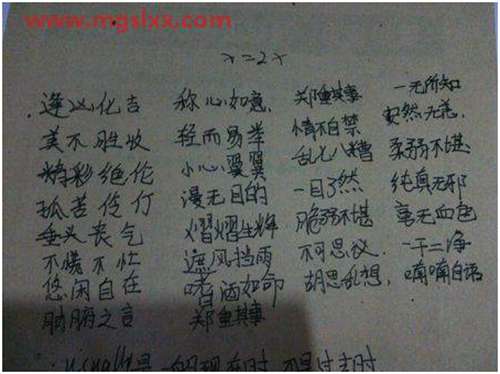 www.mgslxx.com
逢凶化吉 称心如意. 郑重其事 一无所知
美不胜收 轻而易举 情不自禁 安然无恙.
精彩绝伦 小心翼翼 乱七八糟 柔弱不堪
孤苦伶仃 漫无目的 一目了然 纯真无邪
垂头丧气 熠熠生辉 脆弱不堪 毫无血色
不慌不忙 遮风挡雨 不可思议. 一干二净
悠闲自在 嗜酒如命 胡思乱想. 喃喃自语
肺腑之言 郑重其事
usually是一般现在时,不是过去时